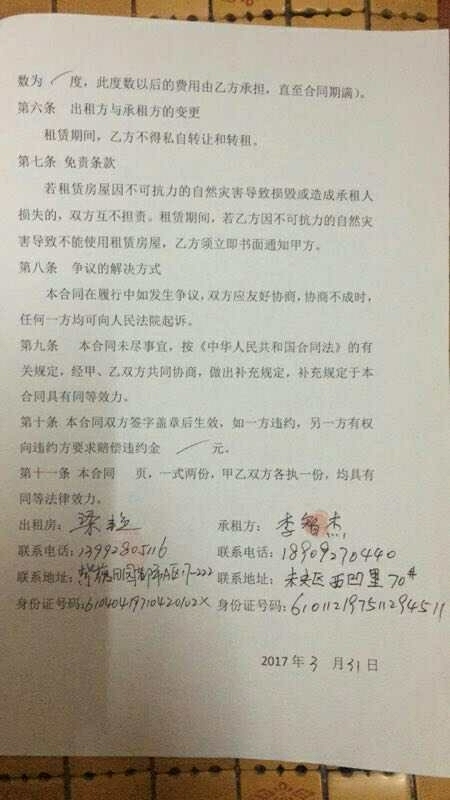 数为 / 度，此度数以后的费用由乙方承担，直至合同期满）。
第六条 出租方与承租方的变更
租赁期间，乙方不得私自转让和转租。
第七条 免责条款
若租赁房屋因不可抗力的自然灾害导致损毁或造成承租人
损失的，双方互不担责。租赁期间，若乙方因不可抗力的自然灾
害导致不能使用租赁房屋，乙方须立即书面通知甲方。
第八条 争议的解决方式
本合同在履行中如发生争议，双方应友好协商，协商不成时，
任何一方均可向人民法院起诉。
第九条 本合同未尽事宜，按《中华人民共和国合同法》的有
关规定，经甲、乙双方共同协商，做出补充规定，补充规定于本
合同具有同等效力。
第十条 本合同双方签字盖章后生效，如一方违约，另一方有权
向违约方要求赔偿违约金 / 元。
第十一条 本合同 页，一式两份，甲乙双方各执一份，均具有
同等法律效力。
出租房：梁 承租方：李智杰
联系电话：13992805116 联系电话：18909270440
联系地址：田园都市A区17-222 联系地址：未央区西凹里70#
身份证号码：61040419710420102X 身份证号码：610112197511294511
2017 年 3 月 31 日